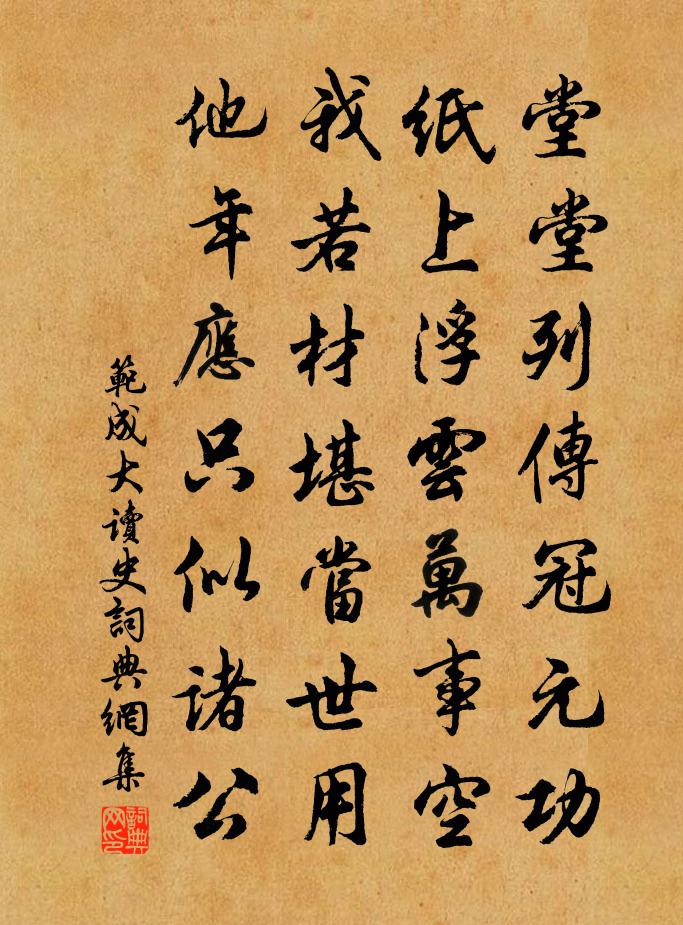 堂堂列傳冠元功
紙上浮雲萬事空
我若材堪當世用
他年應只似諸公
範成大讀史詞典網集
詞典网印